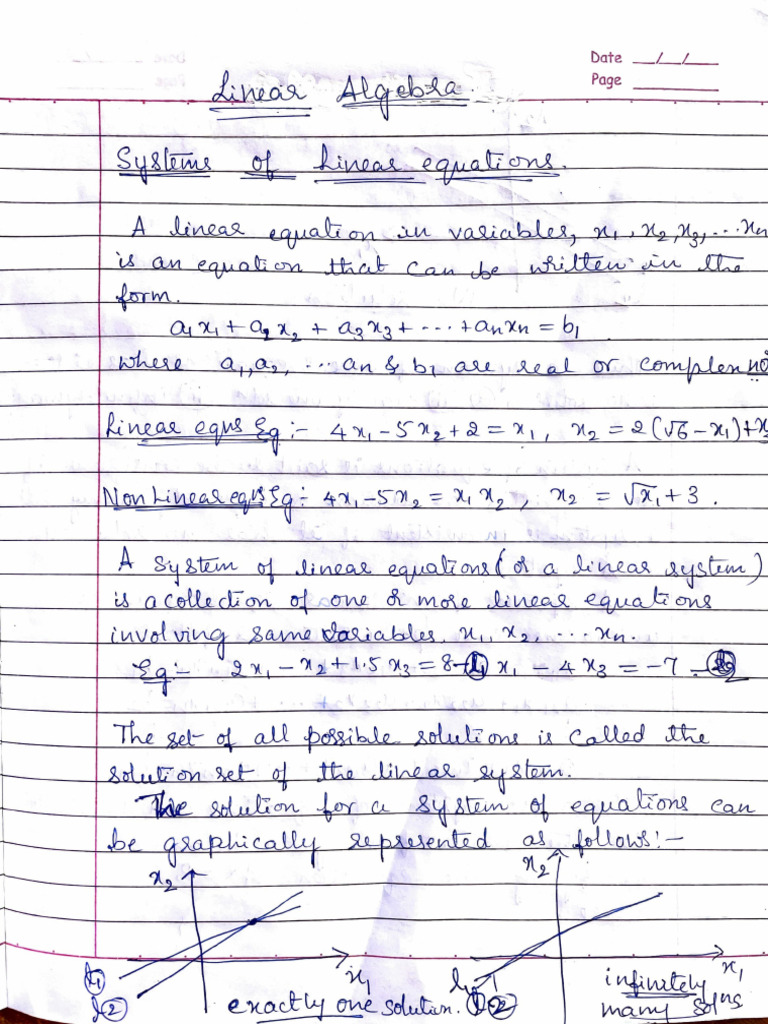 Date __/__/__
Page ______
Linear Algebra
Systems of Linear equations.
A linear equation in variables, x₁, x₂, x₃, ... xₙ
is an equation that can be written in the
form.
a₁x₁ + a₂x₂ + a₃x₃ + ... + aₙxₙ = b₁
where a₁, a₂, ... aₙ & b₁ are real or complex no
Linear eqns Eg :- 4x₁ - 5x₂ + 2 = x₁, x₂ = 2(√6 - x₁) + x₃
Non Linear eqns Eg :- 4x₁ - 5x₂ = x₁x₂, x₂ = √x₁ + 3.
A system of linear equations (or a linear system)
is a collection of one or more linear equations
involving same variables. x₁, x₂, ... xₙ.
Eg :- 2x₁ - x₂ + 1.5x₃ = 8 - ① x₁ - 4x₃ = -7 - ②
The set of all possible solutions is called the
solution set of the linear system.
The solution for a system of equations can
be graphically represented as follows :-
x₂ x₂
x₁ x₁
l① l②
exactly one solution.
l① ②
infinitely
many solns